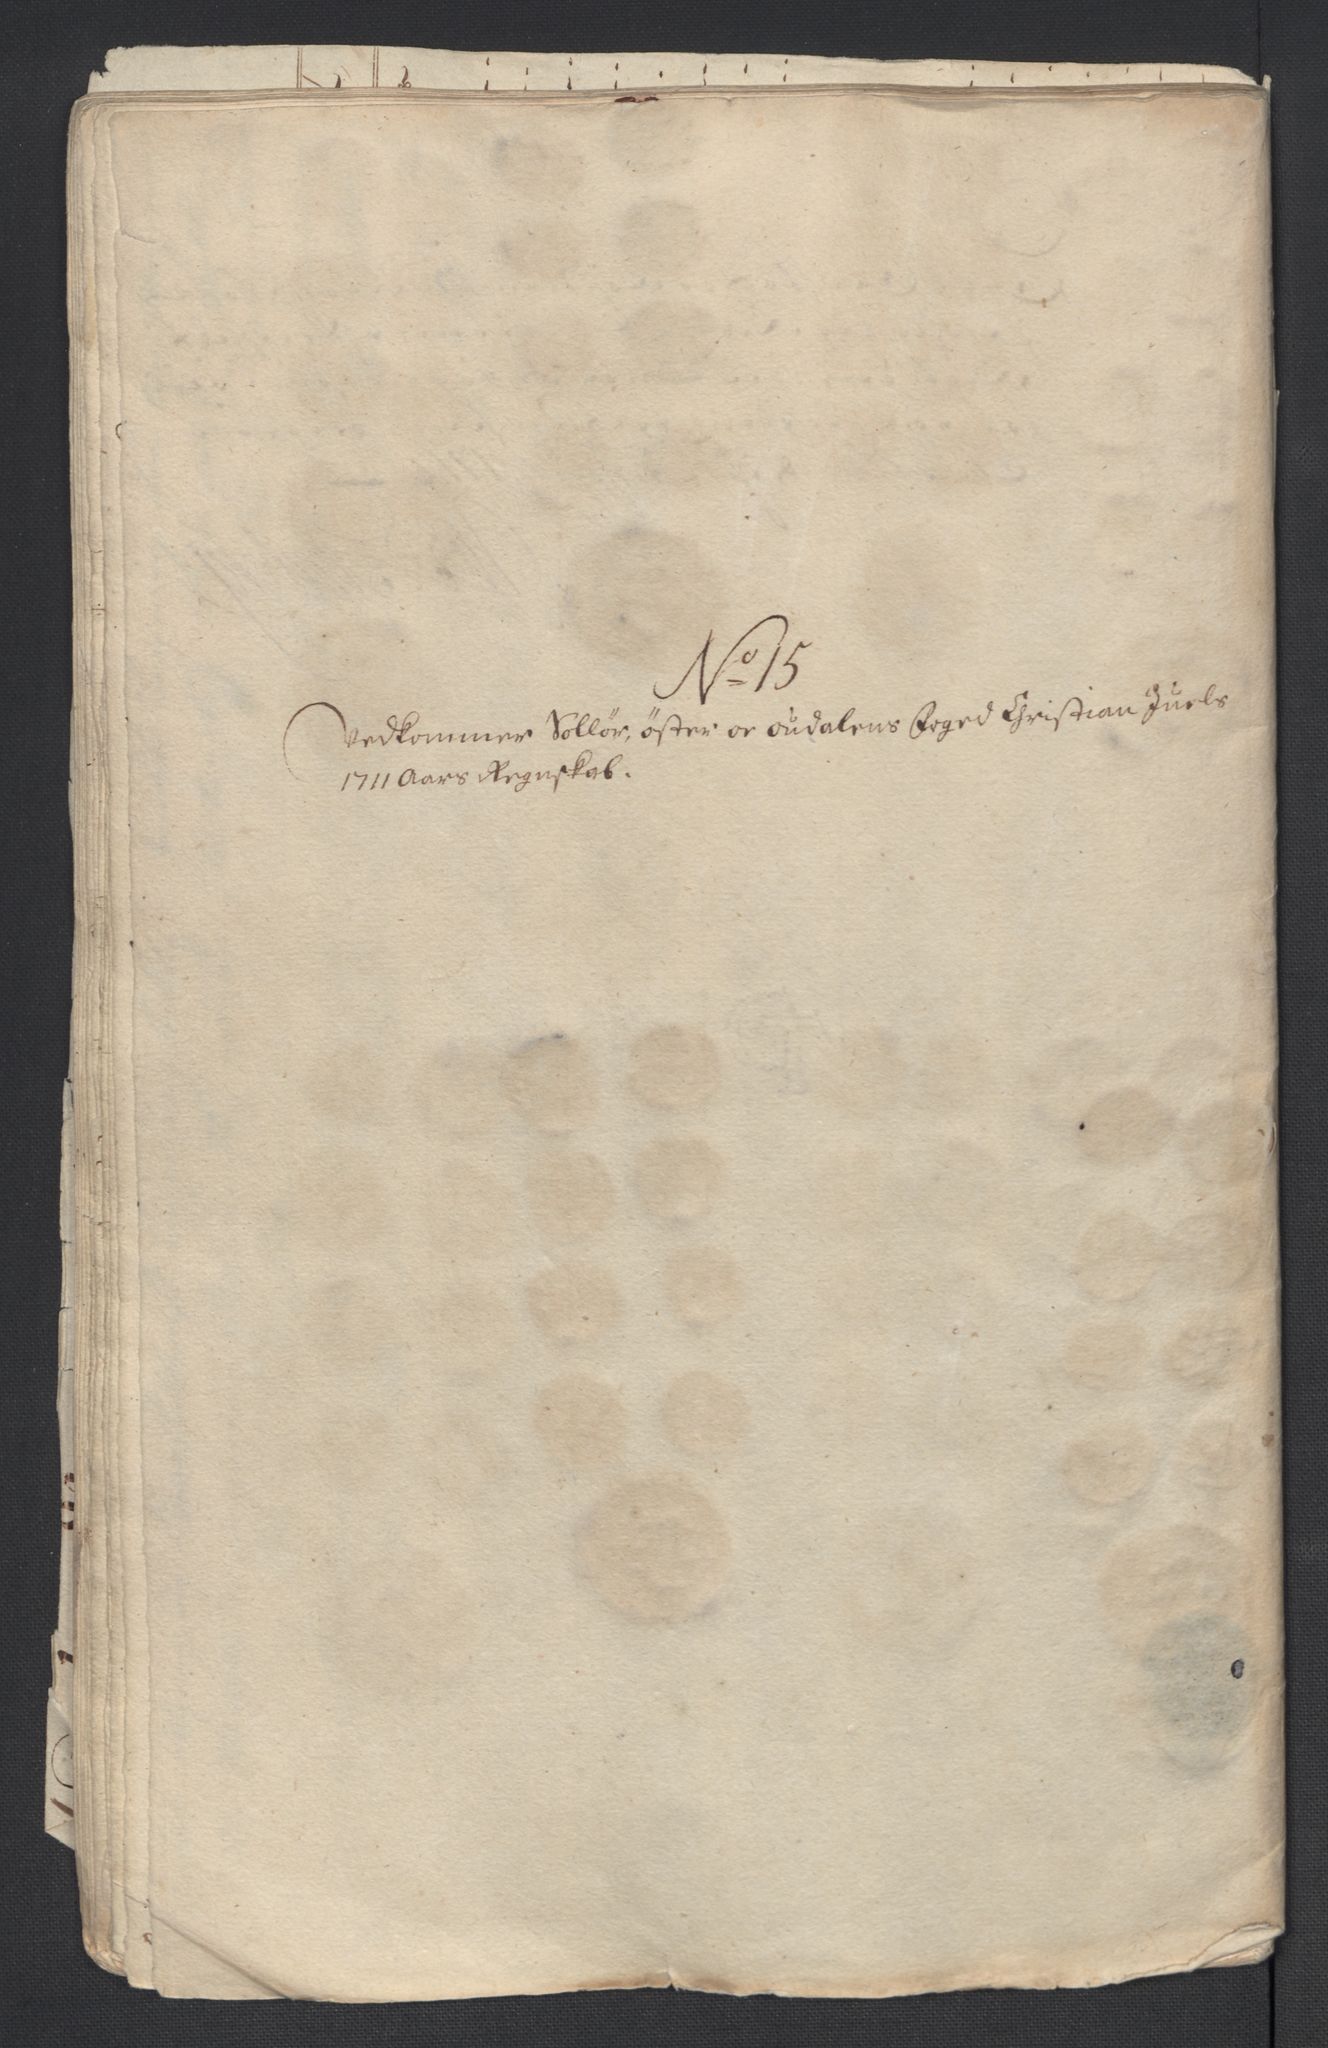 No 15
Vedkommer Sollör, öster oc oudalens Foged Christian Juels
1711 Aars Regnskab.